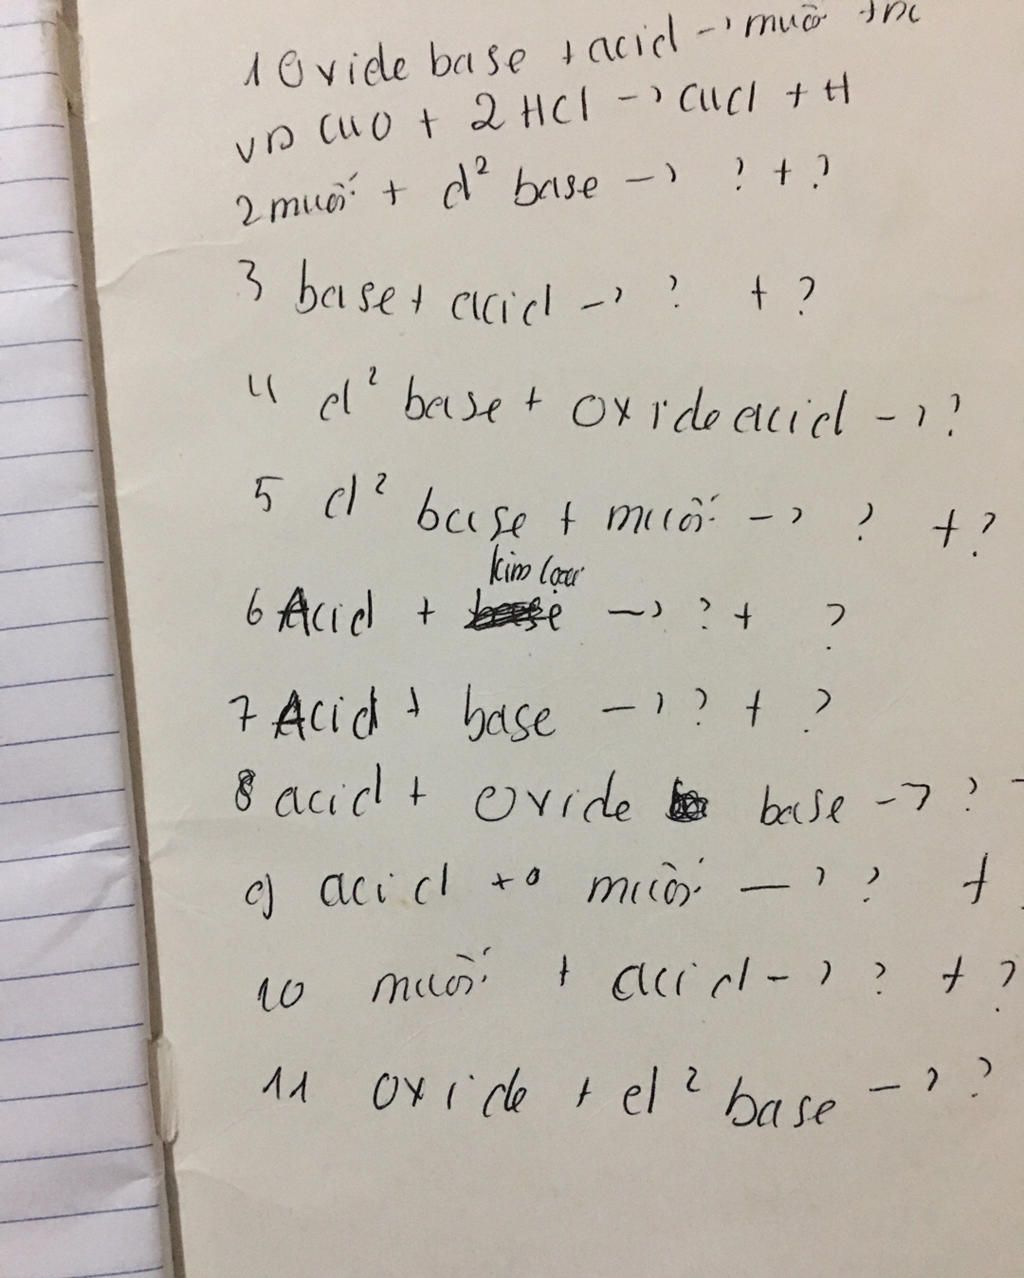 1 Oxide base + acid -> muối + nc
VD CuO + 2HCl -> CuCl + H
2 muối + d² base -> ? + ?
3 base + acid -> ? + ?
4 d² base + oxide acid -> ?
5 d² base + muối -> ? + ?
kim loại
6 Acid + -> ? + ?
7 Acid + base -> ? + ?
8 acid + oxide base -> ?
9 acid + muối -> ? +
10 muối + acid -> ? + ?
11 oxide + d² base -> ?